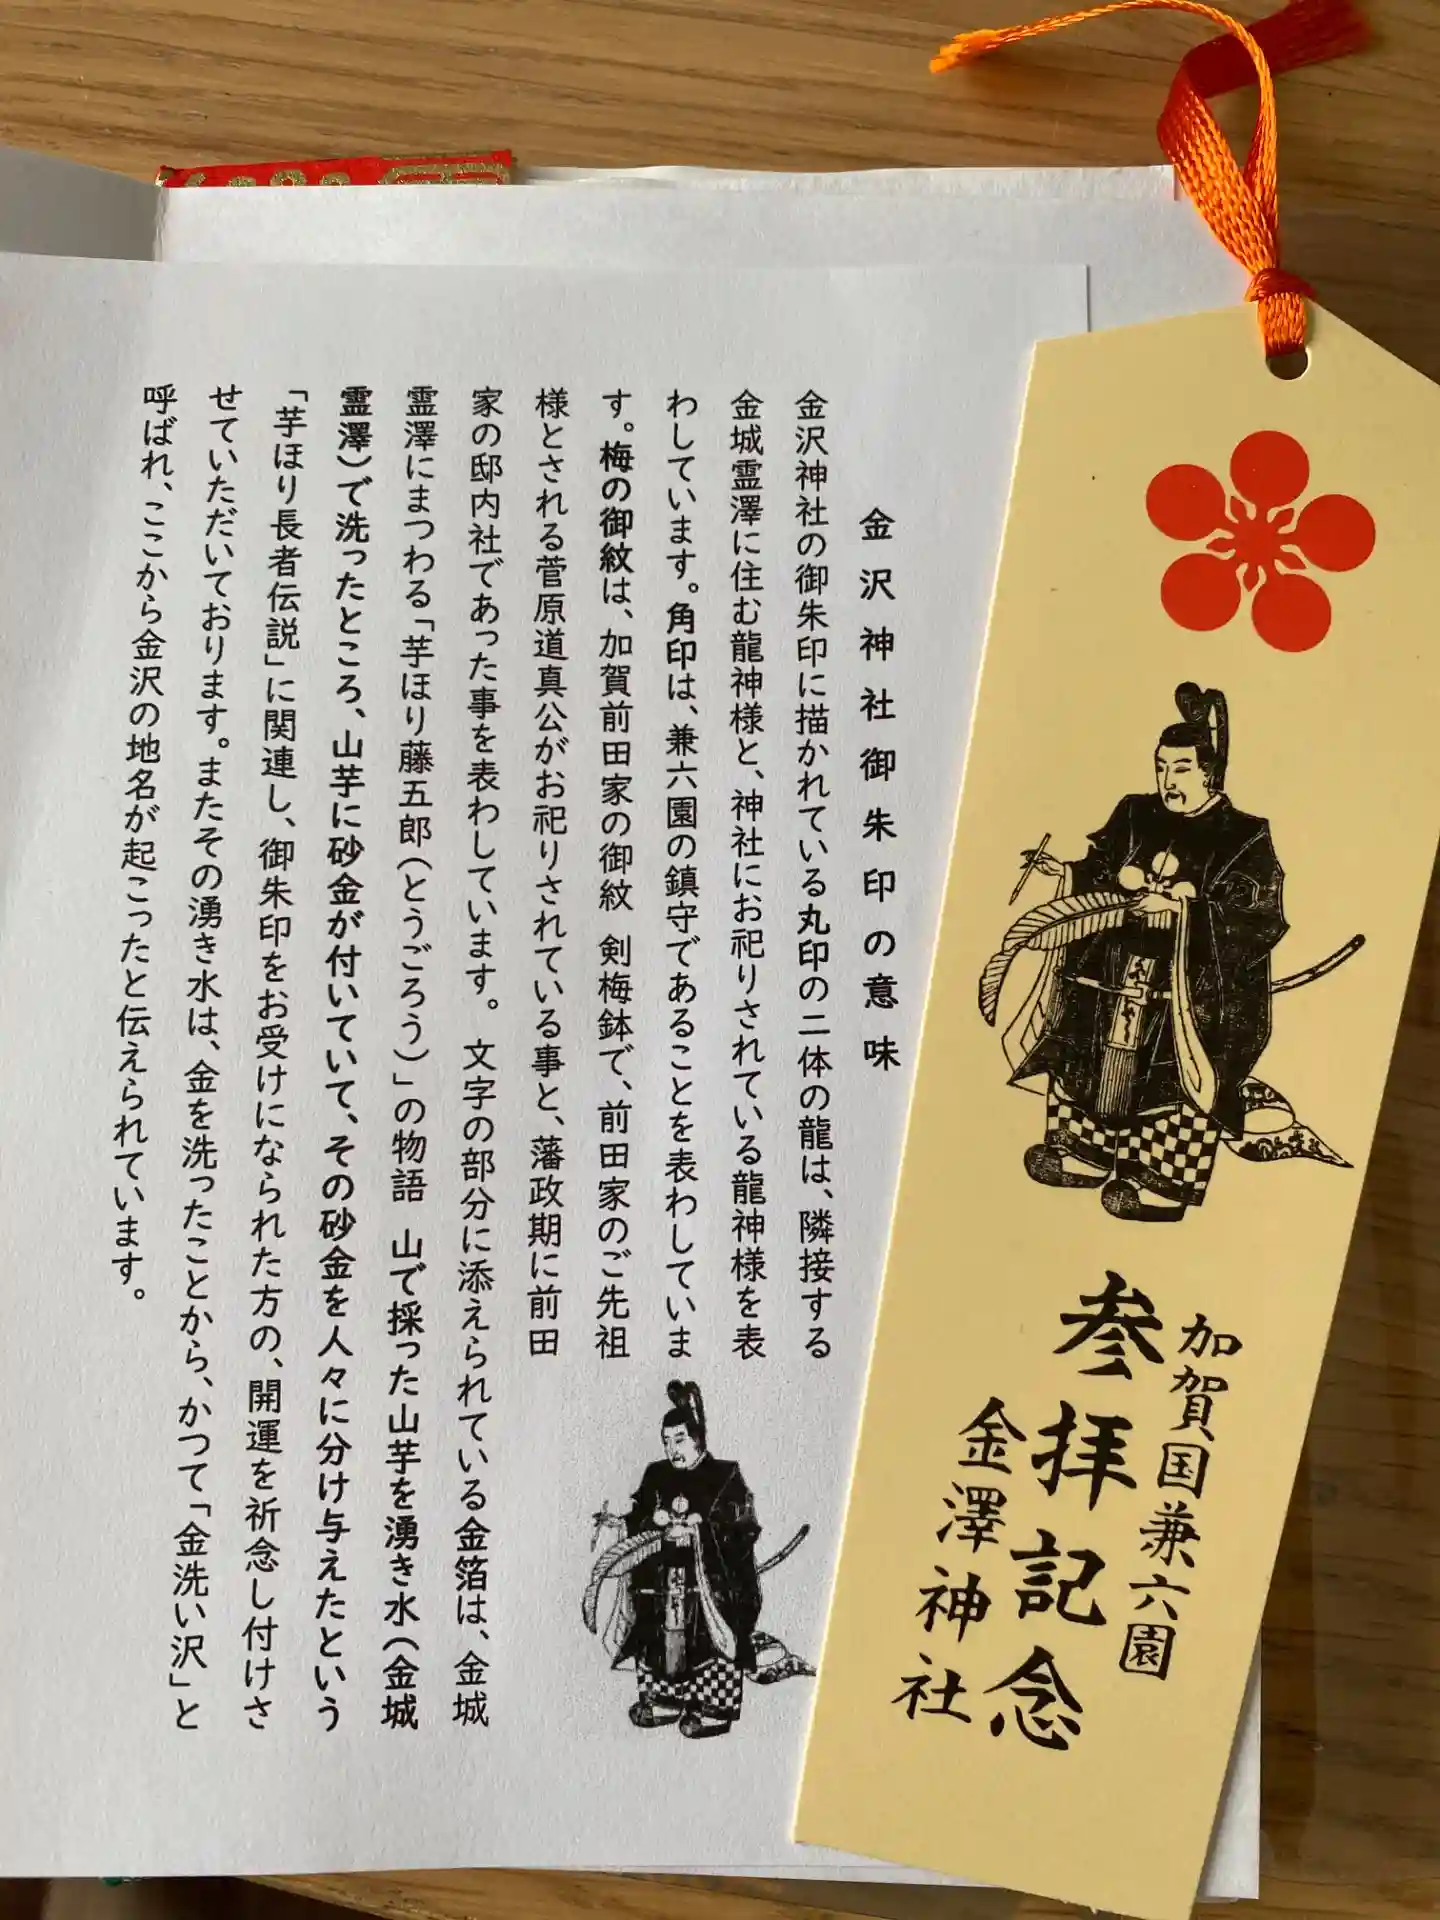 加賀国兼六園
参拝記念
金澤神社
金沢神社御朱印の意味
金沢神社の御朱印に描かれている丸印の二体の龍は、隣接する
金城霊澤に住む龍神様と、神社にお祀りされている龍神様を表
わしています。角印は、兼六園の鎮守であることを表わしていま
す。梅の御紋は、加賀前田家の御紋 剣梅鉢で、前田家のご先祖
様とされる菅原道真公がお祀りされている事と、藩政期に前田
家の邸内社であった事を表わしています。 文字の部分に添えられている金箔は、金城
霊澤にまつわる「芋ほり藤五郎(とうごろう)」の物語 山で採った山芋を湧き水(金城
霊澤)で洗ったところ、山芋に砂金が付いていて、その砂金を人々に分け与えたという
「芋ほり長者伝説」に関連し、御朱印をお受けになられた方の、開運を祈念し付けさ
せていただいております。またその湧き水は、金を洗ったことから、かつて「金洗い沢」と
呼ばれ、ここから金沢の地名が起こったと伝えられています。